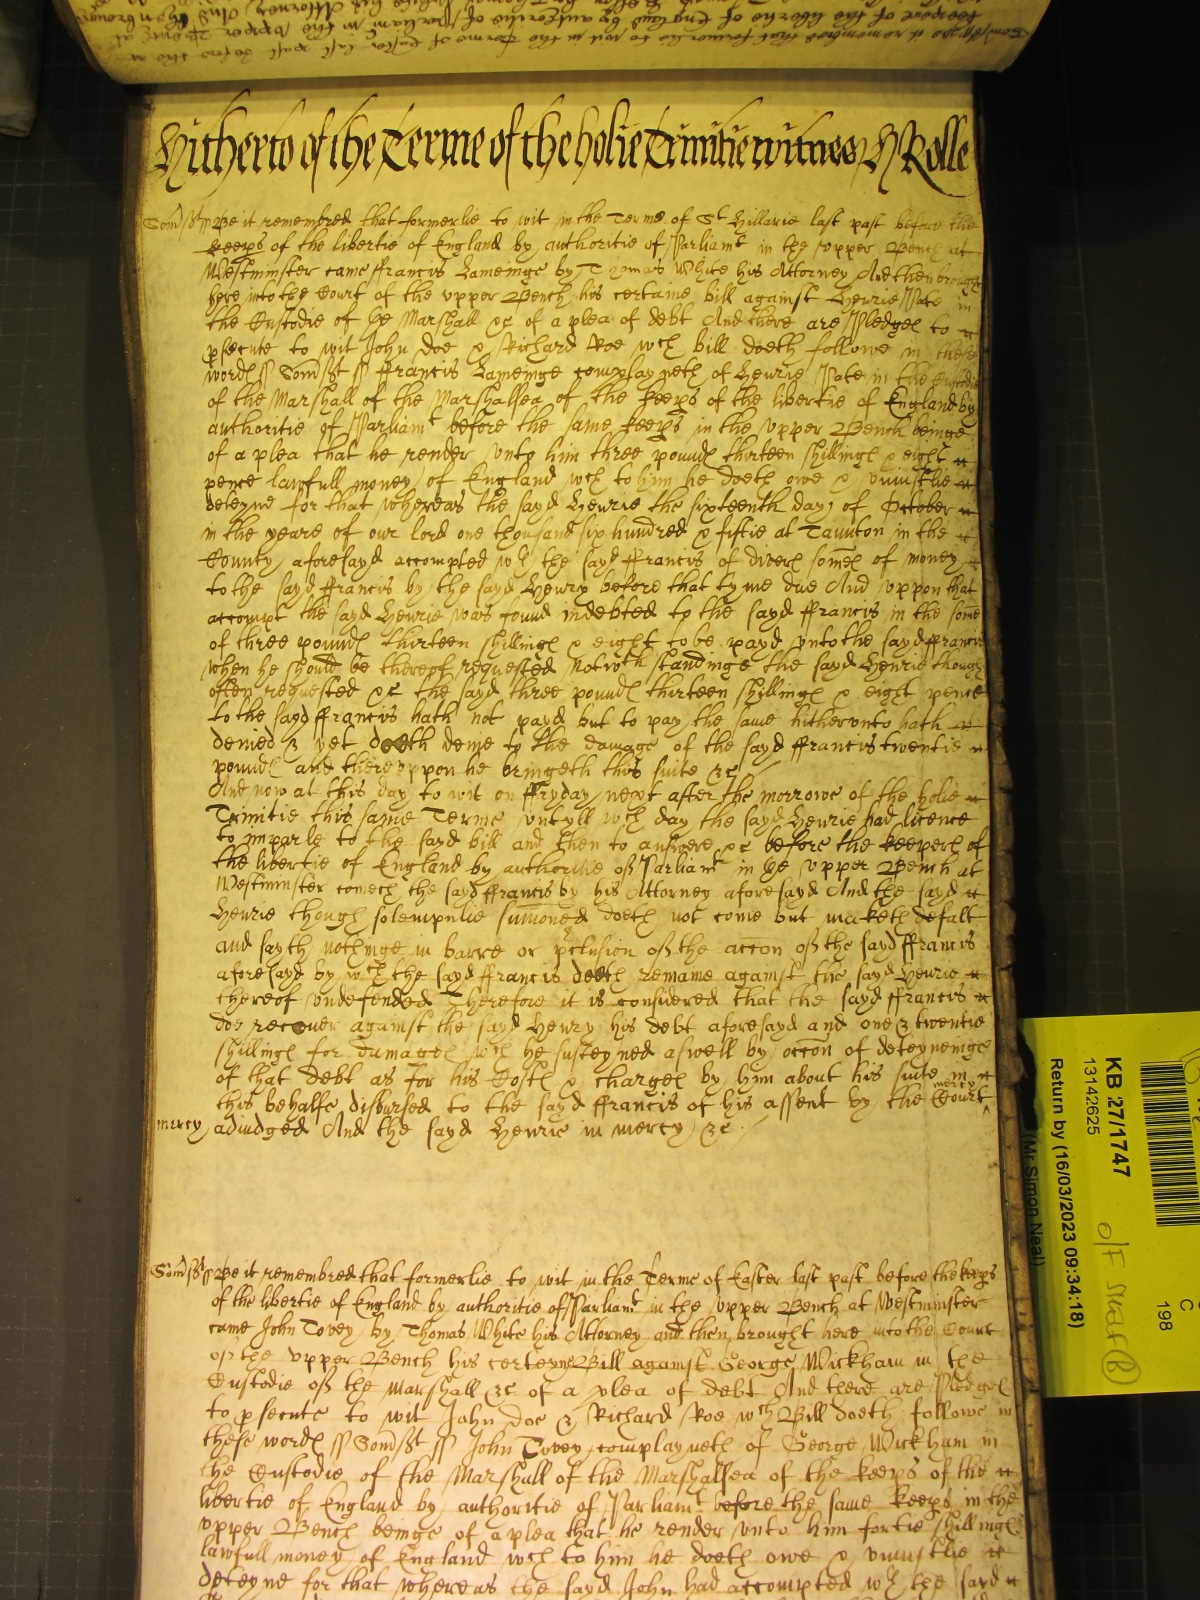 Hitherto of the Terme of the holie Trinitie witnes H Rolle
Somst ss Be it remembred that formerlie to wit in the Terme of St Hillarie last past before the
keeps of the libertie of England by authoritie of Parliamt in the vpper Bench at
Westminster came ffrancis Lameinge by Thomas White his Attorney And then brought
here into the Court of the vpper Bench his certaine bill against Henrie Pate in
the Custodie of ye Marshall &c of a plea of debt And there are Pledges to
psecute to wit John Doe & Richard Roe wch bill doeth followe in these
words ss Somst ss ffrancis Lameinge complayneth of Henrie Pate in the Custodie
of the Marshall of the Marshalsea of the keeps of the libertie of England by
authoritie of Parliamt before the same keeps in the vpper Bench beinge
of a plea that he render vnto him three pounds thirteen shillings & eight
pence lawfull money of England wch to him he doeth owe & vniustlie
deteyne for that whereas the sayd Henrie the sixteenth day of October
in the yeare of our lord one thousand six hundred & fiftie at Taunton in the
County aforesayd accompted wth the sayd ffrancis of divers somes of money
to the sayd ffrancis by the sayd Henry before that tyme due And vppon that
accompt the sayd Henrie was found indebted to the sayd ffrancis in the some
of three pounds thirteen shillings & eight to be payd vnto the sayd ffrancis
when he should be thereof requested Notwthstandinge the sayd Henrie though
often requested &c the sayd three pounds thirteen shillings & eight pence
to the sayd ffrancis hath not payd but to pay the same hithervnto hath
denied & yet doeth denie to the damage of the sayd ffrancis twentie
pounds and therevppon he bringeth this suite &c
And now at this day to wit on ffryday next after the morrowe of the holie
Trinitie this same Terme vntyll wch day the sayd Henrie had licence
to imparle to the sayd bill and then to answere &c before the keepers of
the libertie of England by authoritie of Parliamt in ye vpper Bench at
Westminster cometh the sayd ffrancis by his Attorney aforesayd And the sayd
Henrie though solempnlie sumoned doeth not come but maketh defalt
and sayth nothinge in barre or pclusion of the accon of the sayd ffrancis
aforesayd by wch the sayd ffrancis doeth remaine against the sayd Henrie
thereof vndefended Therefore it is considered that the sayd ffrancis
doe recouer against the sayd Henry his debt aforesayd and one & twentie
shillings for damages wch he susteyned aswell by occon of deteyneinge
of that debt as for his Costs & charges by him about his suite in
this behalfe disbursed to the sayd ffrancis of his assent by the Court mercy
mercy adiudged And the sayd Henrie in mercy &c
Somst ss Be it remembred that formerlie to wit in the Terme of Easter last past before the keeps
of the libertie of England by authoritie of Parliamt in the vpper Bench at Westminster
came John Tovey by Thomas White his Attorney and then brought here into the Court
of the vpper Bench his certeyne Bill against George Wickham in the
Custodie of the Marshall &c of a plea of debt And there are Pledges
to psecute to wit John Doe & Richard Roe wch Bill doeth followe in
these words ss Somst ss John Tovey complayneth of George Wickham in
the Custodie of the Marshall of the Marshalsea of the keeps of the
libertie of England by authoritie of Parliamt before the same keeps in the
vpper Bench beinge of a plea that he render vnto him fortie shillings
lawfull money of England wch to him he doeth owe & vniustlie
deteyne for that whereas the sayd John had accompted wth the sayd
KB 27/1747
13142625
Return by (16/03/2023 09:34:18)
(Mr Simon Neal)
C
198